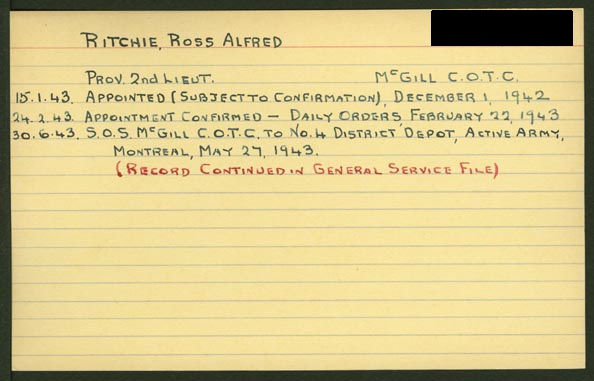 RITCHIE, ROSS ALFRED
PROV. 2nd LIEUT. McGILL C.O.T.C.
15.1.43. APPOINTED (SUBJECT TO CONFIRMATION), DECEMBER 1, 1942
24.2.43. APPOINTMENT CONFIRMED – DAILY ORDERS, FEBRUARY 22, 1943
30.6.43. S.O.S. McGILL C.O.T.C. TO No. 4 DISTRICT DEPOT, ACTIVE ARMY,
MONTREAL, MAY 27, 1943.
(RECORD CONTINUED IN GENERAL SERVICE FILE)